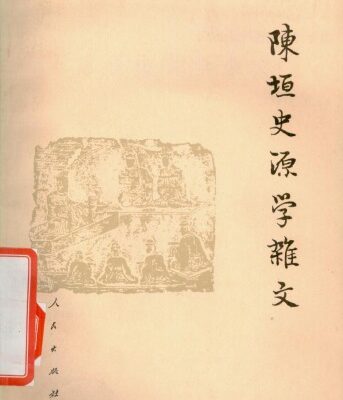 陳垣史源学雜文
人民出版社